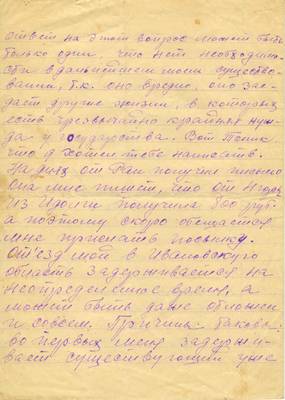 ответ на этот вопрос может быть
только один что нет необходимо-
сти в дальнейшем моем существо-
вании, т.к. оно вредно, оно зае-
дает другие жизни, в которых
есть чрезвычайно крайняя нуж-
да у государства. Вот Топик
что я хотел тебе написать.
На днях от Раи получил письмо
она мне пишет, что от
из получила 500 руб.
а поэтому скоро обещается
мне прислать посылку.
Отъезд мой в Ивановскую
область задерживается на
неопределенное время, а
может быть даже отложен
и совсем. Причины таковы:
во первых меня задержи-
вает существующий уже